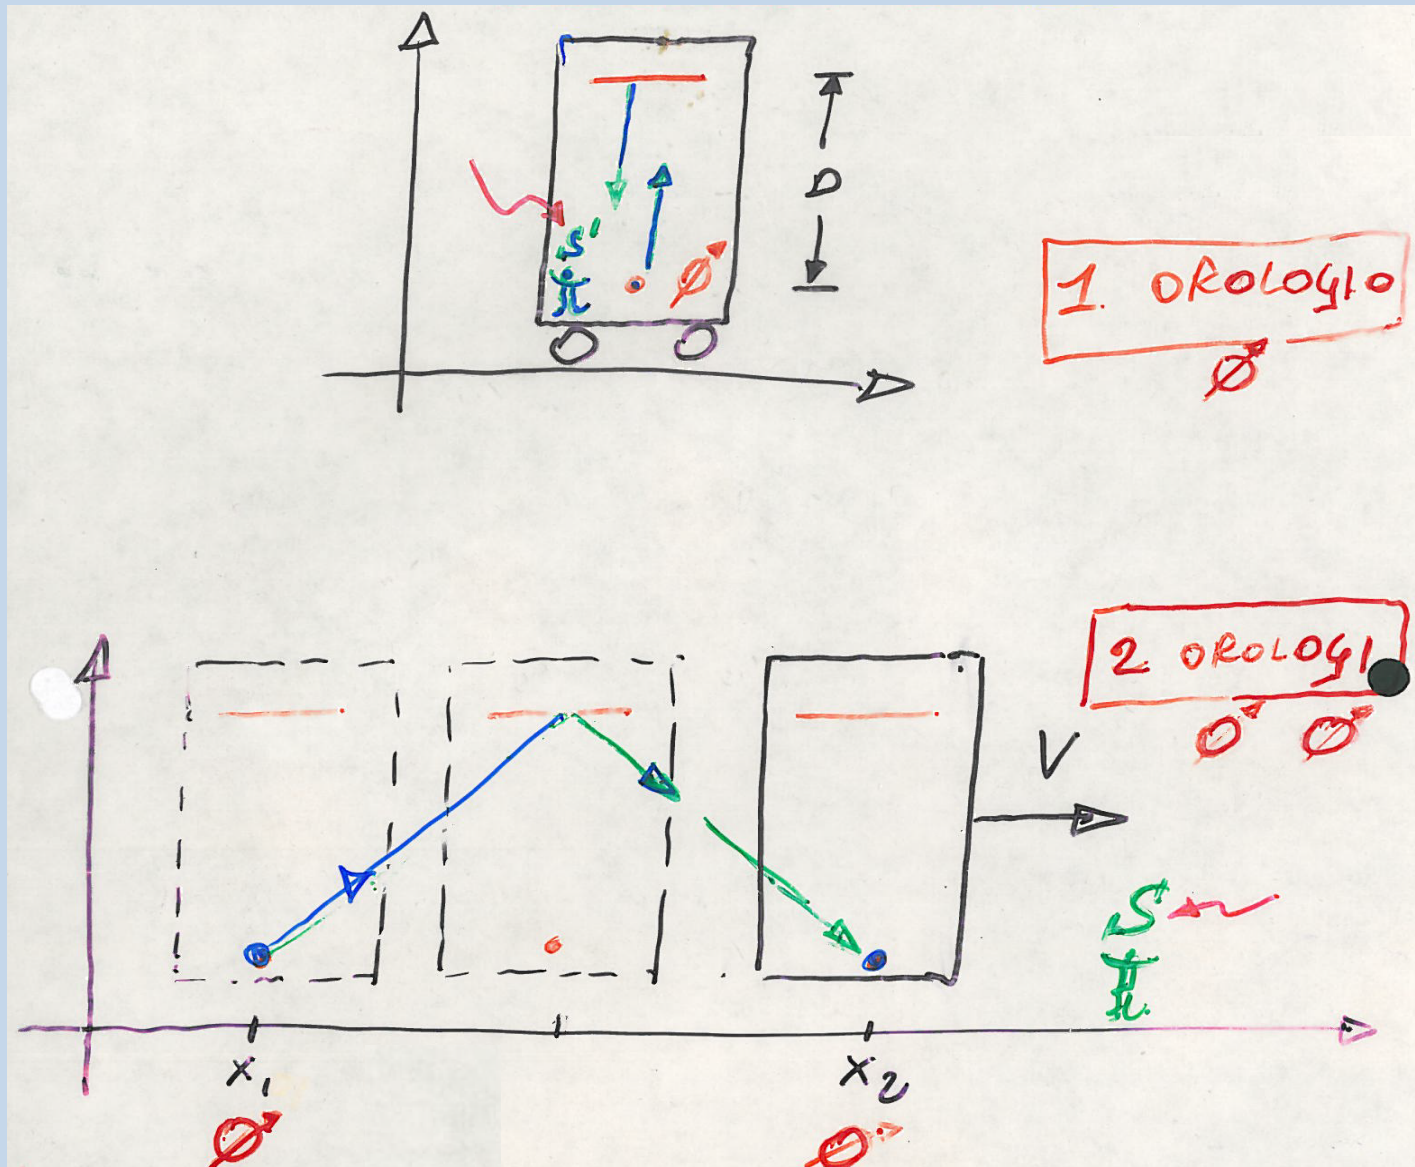 D
S'
1. OROLOGIO
2 OROLOGI
V
S
x₁
x₂